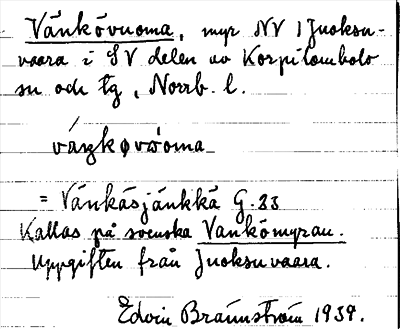 Vánkôvuoma, myr NV i Juoksu-
vaara i SV delen av Korpilombolo
sn och tg, Norrb. l.
= Vánkásjánkká G.23
Kallas på svenska Vankômyran.
Uppgiften från Juoksuvaara.
Edvin Brännström 1939.